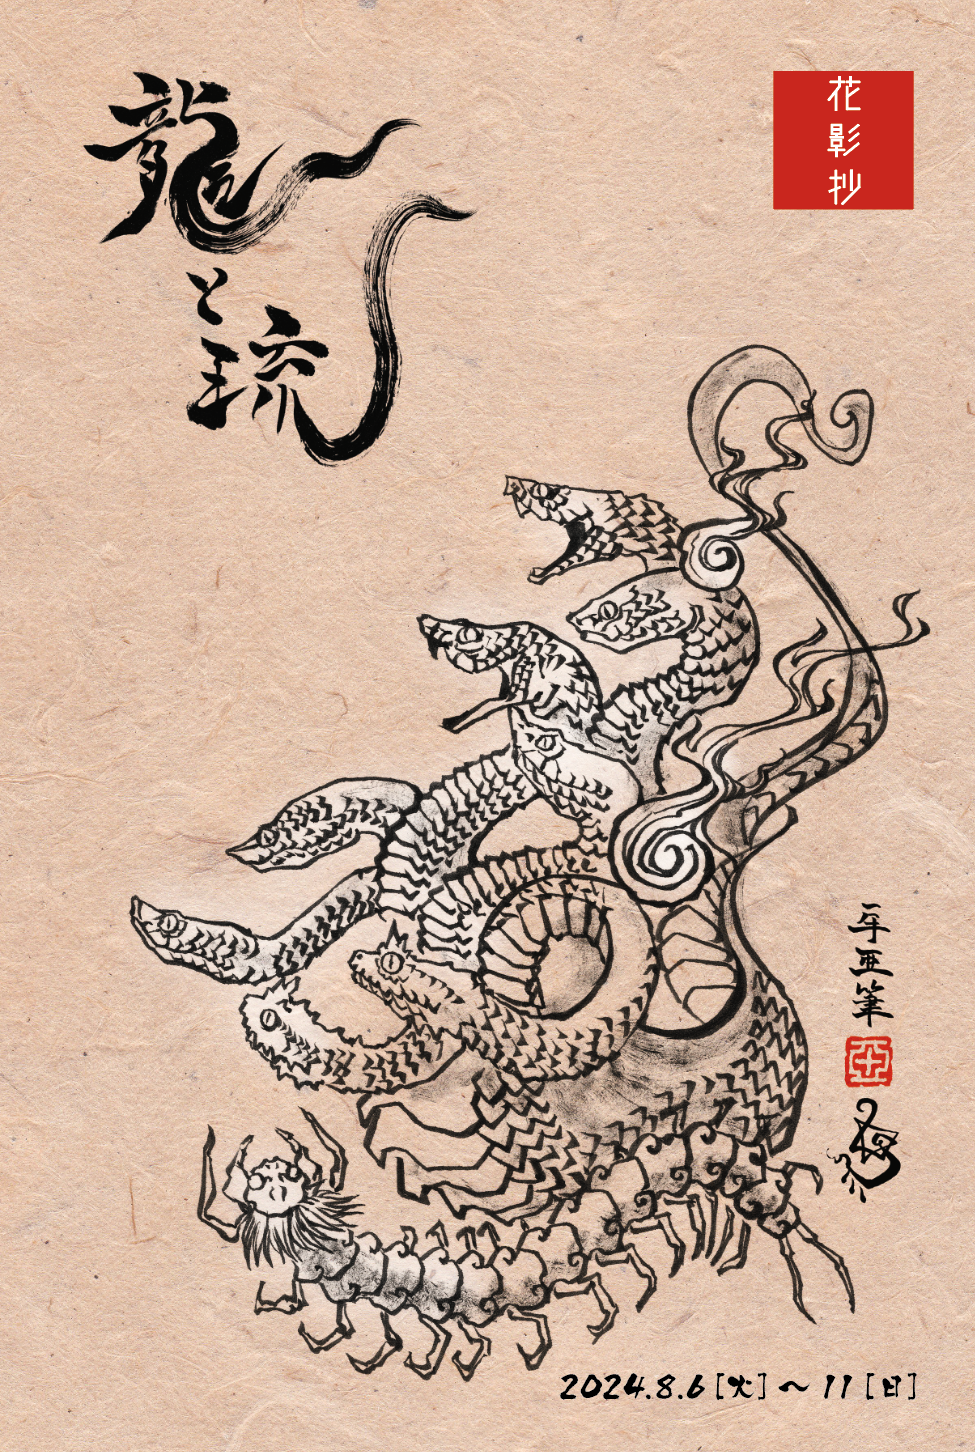 龍
と
琉
花影抄
亜筆
亞
2024.8.6[火]～11[日]